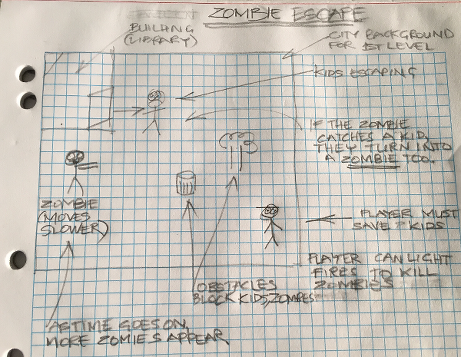 ZOMBIE ESCAPE
BUILDING
(LIBRARY)
CITY BACKGROUND
FOR 1ST LEVEL
KIDS ESCAPING
IF THE ZOMBIE
CATCHES A KID,
THEY TURN INTO
A ZOMBIE TOO.
ZOMBIE
(MOVES
SLOWER)
PLAYER MUST
SAVE KIDS
PLAYER CAN LIGHT
FIRES TO KILL
ZOMBIES
OBSTACLES
BLOCK KIDS, ZOMBIES
AS TIME GOES ON,
MORE ZOMIES APPEAR